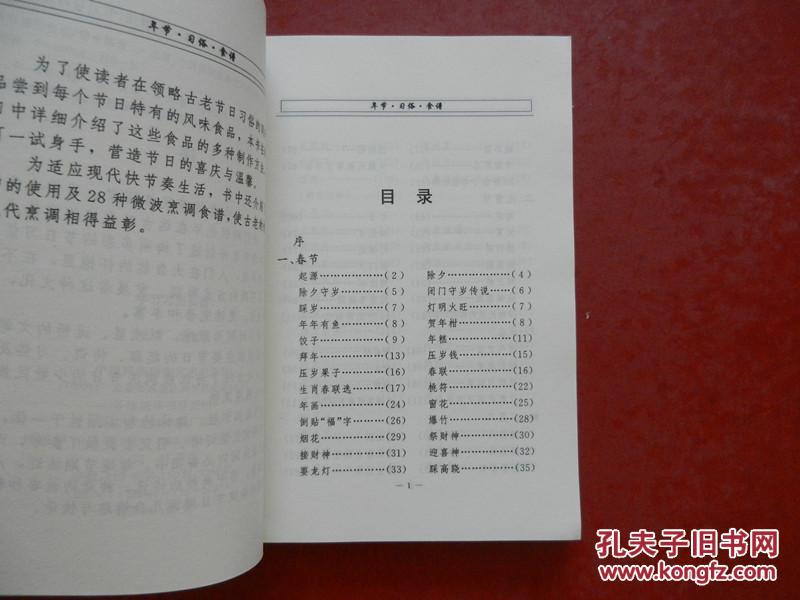 年节·习俗·食谱
为了使读者在领略古老节日习俗的
品尝到每个节日特有的风味食品,本书
中详细介绍了这些食品的多种制作方
一试身手,营造节日的喜庆与温馨。
为适应现代快节奏生活,书中还介
的使用及28种微波烹调食谱,使古老
代烹调相得益彰。
年节·习俗·食谱
目 录
序
一、春节
起源………………(2) 除夕………………(4)
除夕守岁…………(5) 闭门守岁传说……(6)
踩岁………………(7) 灯明火旺…………(7)
年年有鱼…………(8) 贺年柑……………(8)
饺子………………(9) 年糕………………(11)
拜年………………(13) 压岁钱……………(15)
压岁果子…………(16) 春联………………(16)
生肖春联选………(17) 桃符………………(22)
年画………………(24) 窗花………………(25)
倒贴“福”字………(26) 爆竹………………(28)
烟花………………(29) 祭财神……………(30)
接财神……………(31) 迎喜神……………(32)
耍龙灯……………(33) 踩高跷……………(35)
— 1 —
孔夫子旧书网
www.kongfz.com